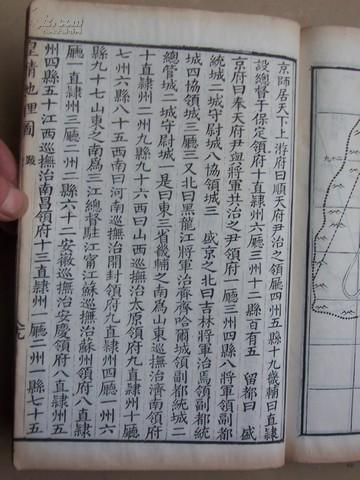 京師居天下上游府曰順天府尹治之領廳四州五縣十九畿輔曰直隸
設總督于保定領府十直隸州六廳三州十二縣百有五　留都曰　盛
京府曰奉天府尹與將軍共治之尹領府一廳三州四縣八將軍領副都
統城二城守尉城八協領城三　盛京之北曰吉林將軍治焉領副都統
城四協領城三廳三又北曰黑龍江將軍治齊齊哈爾城領副都統城二
總管城二城守尉城一是曰東三省畿輔之南為山東巡撫治濟南領府
十直隸州二州九縣九十六西曰山西巡撫治太原領府九直隸州十廳
七州六縣八十五西南曰河南巡撫治開封領府九直隸州四廳一州六
縣九十七山東之南為兩江總督駐江甯江蘇巡撫治蘇州領府八直隸
廳一直隸州三廳二州三縣六十二安徽巡撫治安慶領府八直隸州五
州四縣五十江西巡撫治南昌領府十三直隸州一廳二州一縣七十五
皇清地理圖